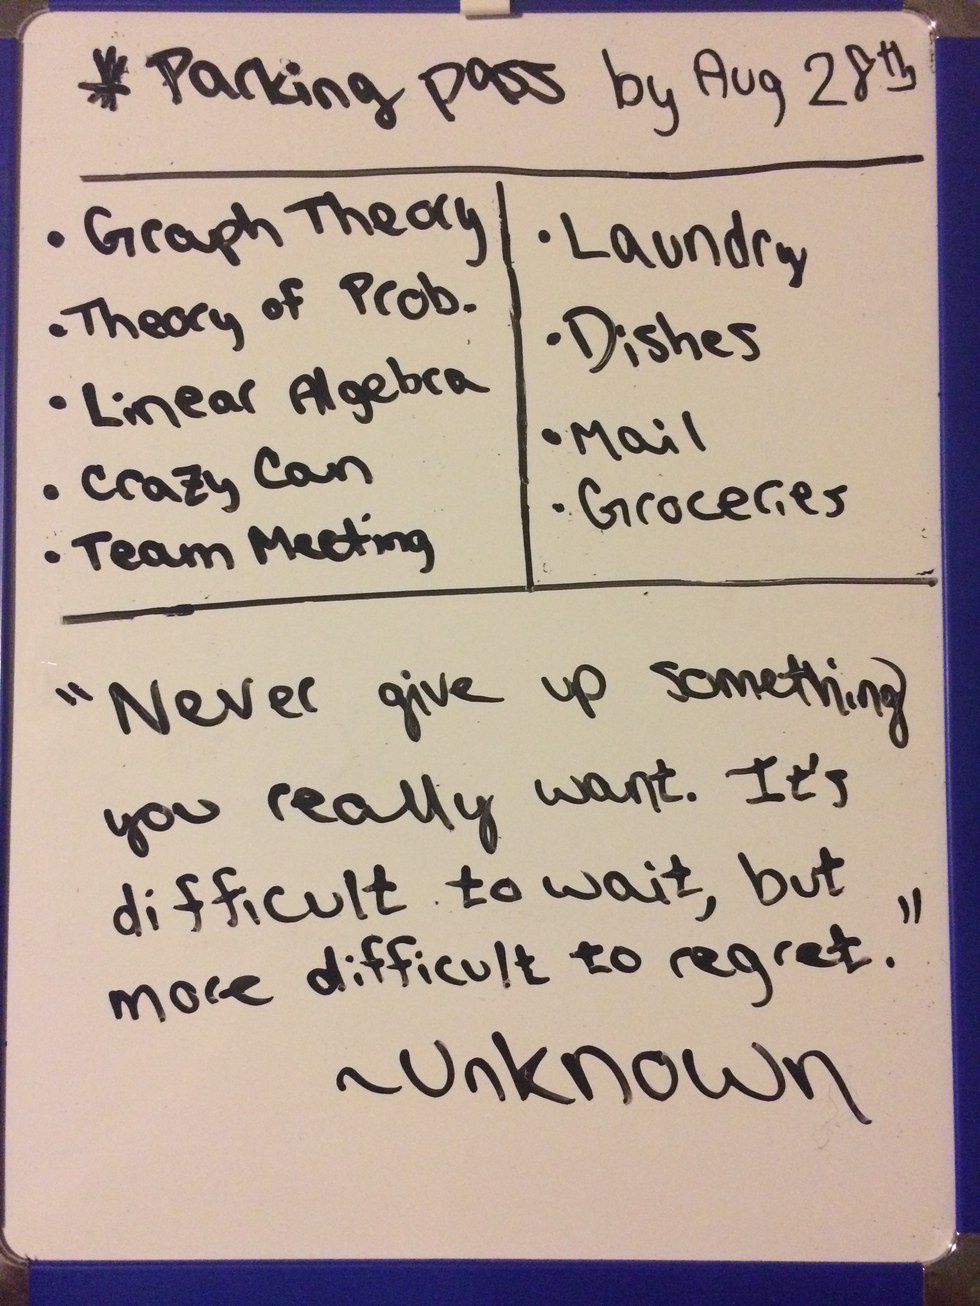 * Parking pass by Aug 28th
• Graph Theory
• Theory of Prob.
• Linear Algebra
• Crazy Can
• Team Meeting
• Laundry
• Dishes
• Mail
• Groceries
"Never give up something
you really want. It's
difficult to wait, but
more difficult to regret."
~Unknown